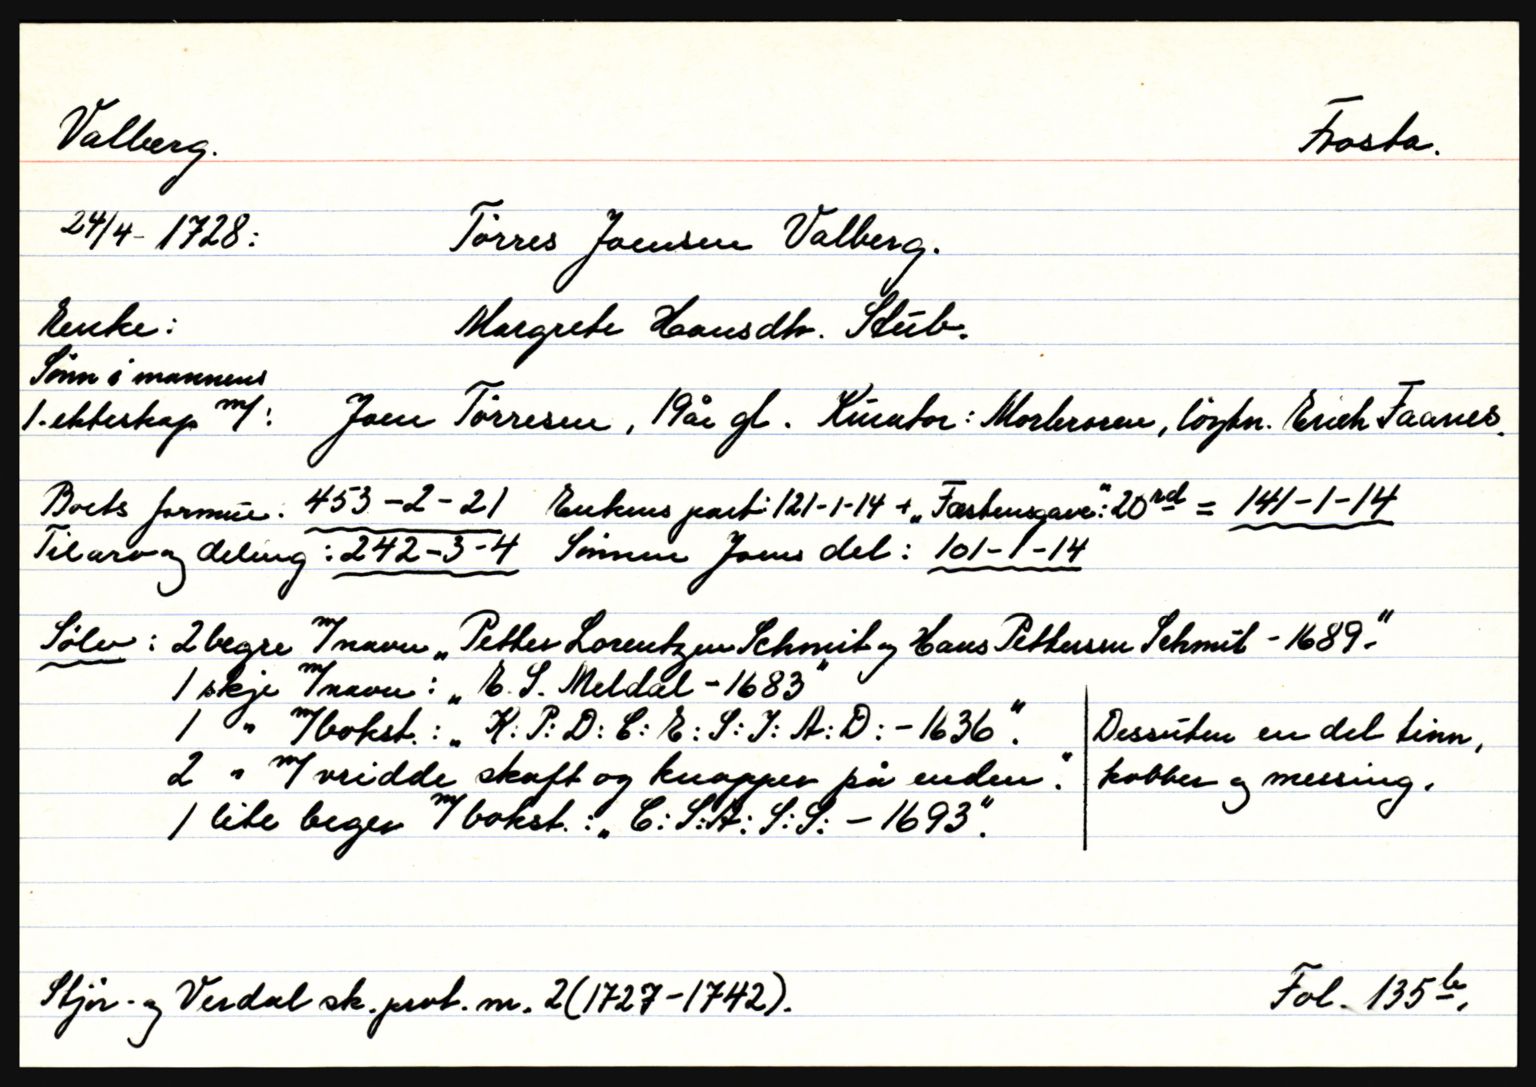 Valberg. Frosta.
24/4- 1728: Törres Joensen Valberg.
Enke: Margrete Hansdtr. Stub.
Sönn i mannens
1. ekteskap m/: Joen Törresen, 19 år gl. Kurator: Morbroren, löytn. Erich Faanes.
Boets formue: 453-2-21 Enkens part: 121-1-14 + „Fæstensgave": 20 rd = 141-1-14
Til arv og deling: 242-3-4 Sönnen Joens del: 101-1-14
Sölv: 2 begre m/navn „Petter Lorentzen Schmit og Hans Pettersen Schmit - 1689."
1 skje m/navn: „E. S. Meldal - 1683"
1 " m/bokst.: „K: P: D: C: E: S: I: A: D: - 1636".
2 " m/vridde skaft og knapper på enden".
1 lite beger m/bokst.: „C: S: A: S: S: - 1693".
Dessuten en del tinn,
kobber og messing.
Stjör- og Verdal sk. prot. nr. 2 (1727-1742). Fol. 135 b.